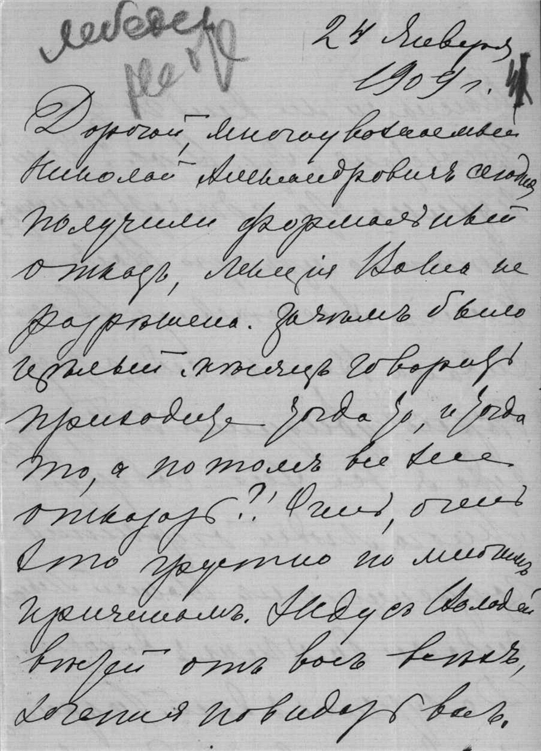 24 Января
1909 г.
Дорогой, многоуважаемый
Николай Александровичъ сегодня
получили формальный
отказъ, лекція не
разрѣшена. Зачѣмъ было
цѣлый мѣсяцъ говорить
приходите тогда то, и тогда
то, а потомъ все таки
отказать?! Очень, очень
это грустно по многимъ
причинамъ. Жду съ Володей
вѣстей отъ васъ всѣхъ,
хочется повидать васъ.